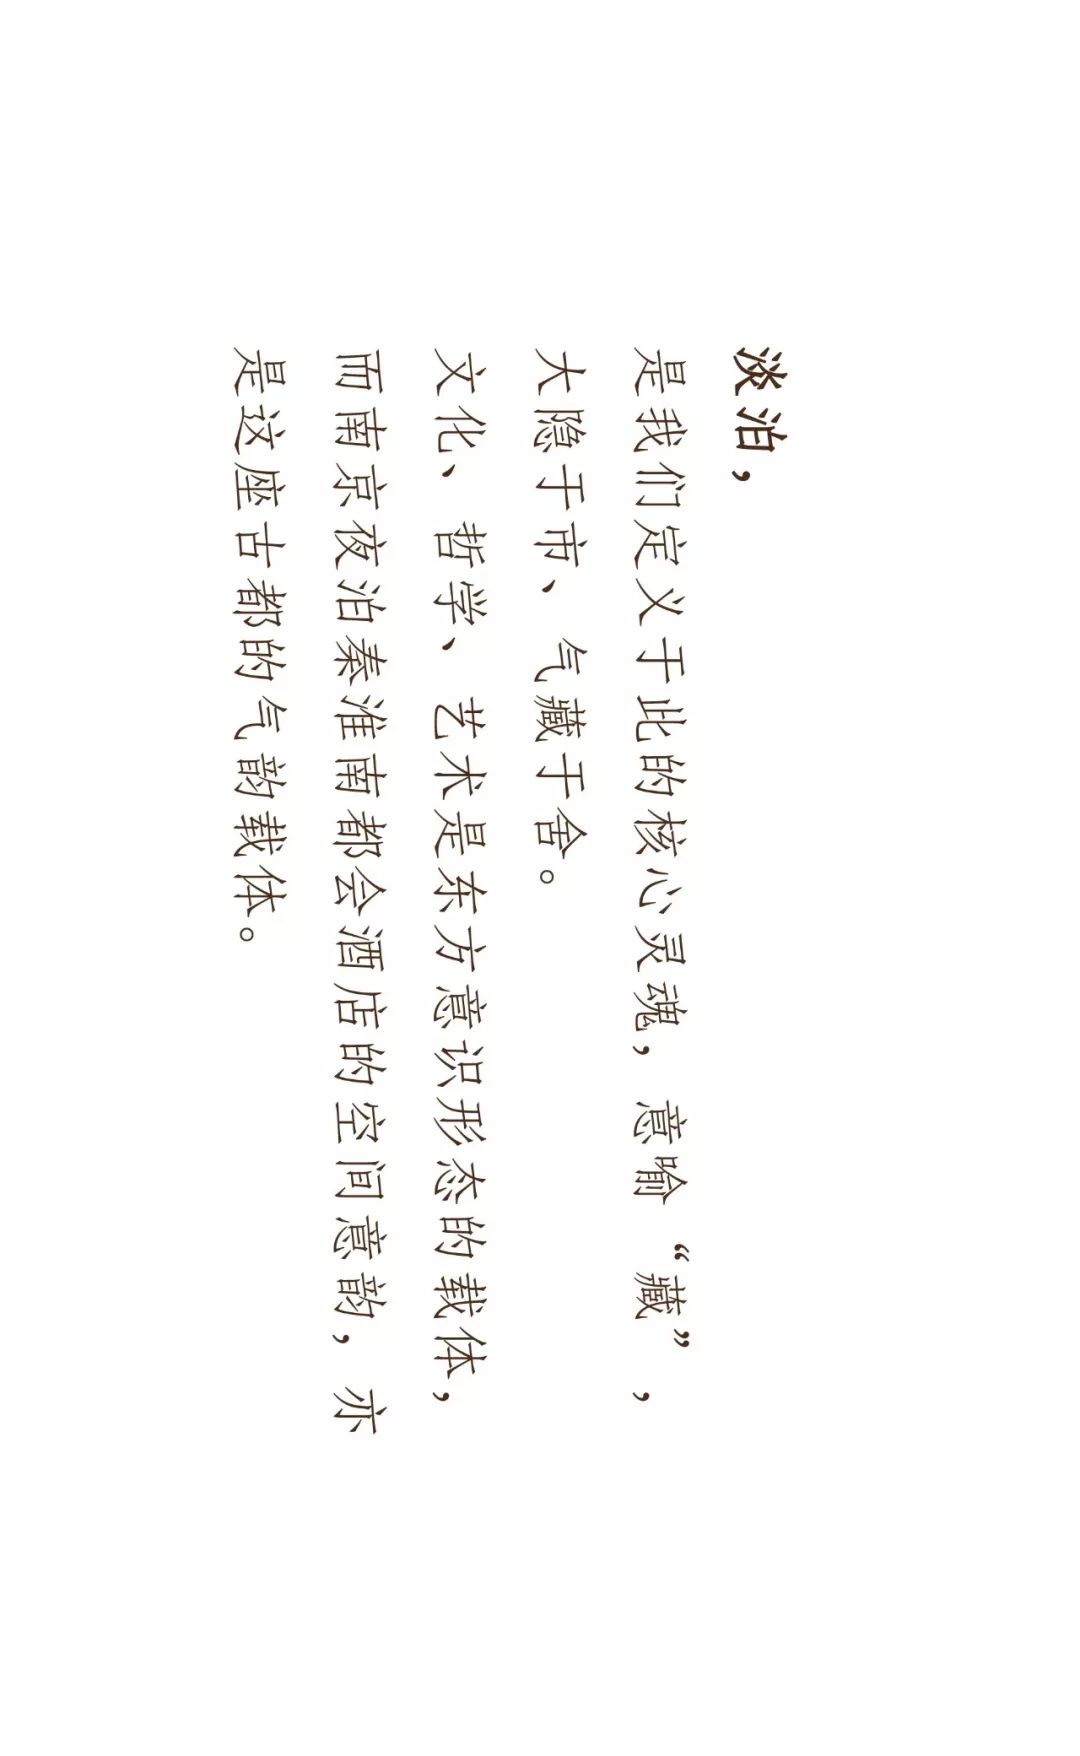 淡泊，
是我们定义于此的核心灵魂，意喻“藏”，
大隐于市、气藏于舍。
文化、哲学、艺术是东方意识形态的载体，
而南京夜泊秦淮南都会酒店的空间意韵，亦
是这座古都的气韵载体。